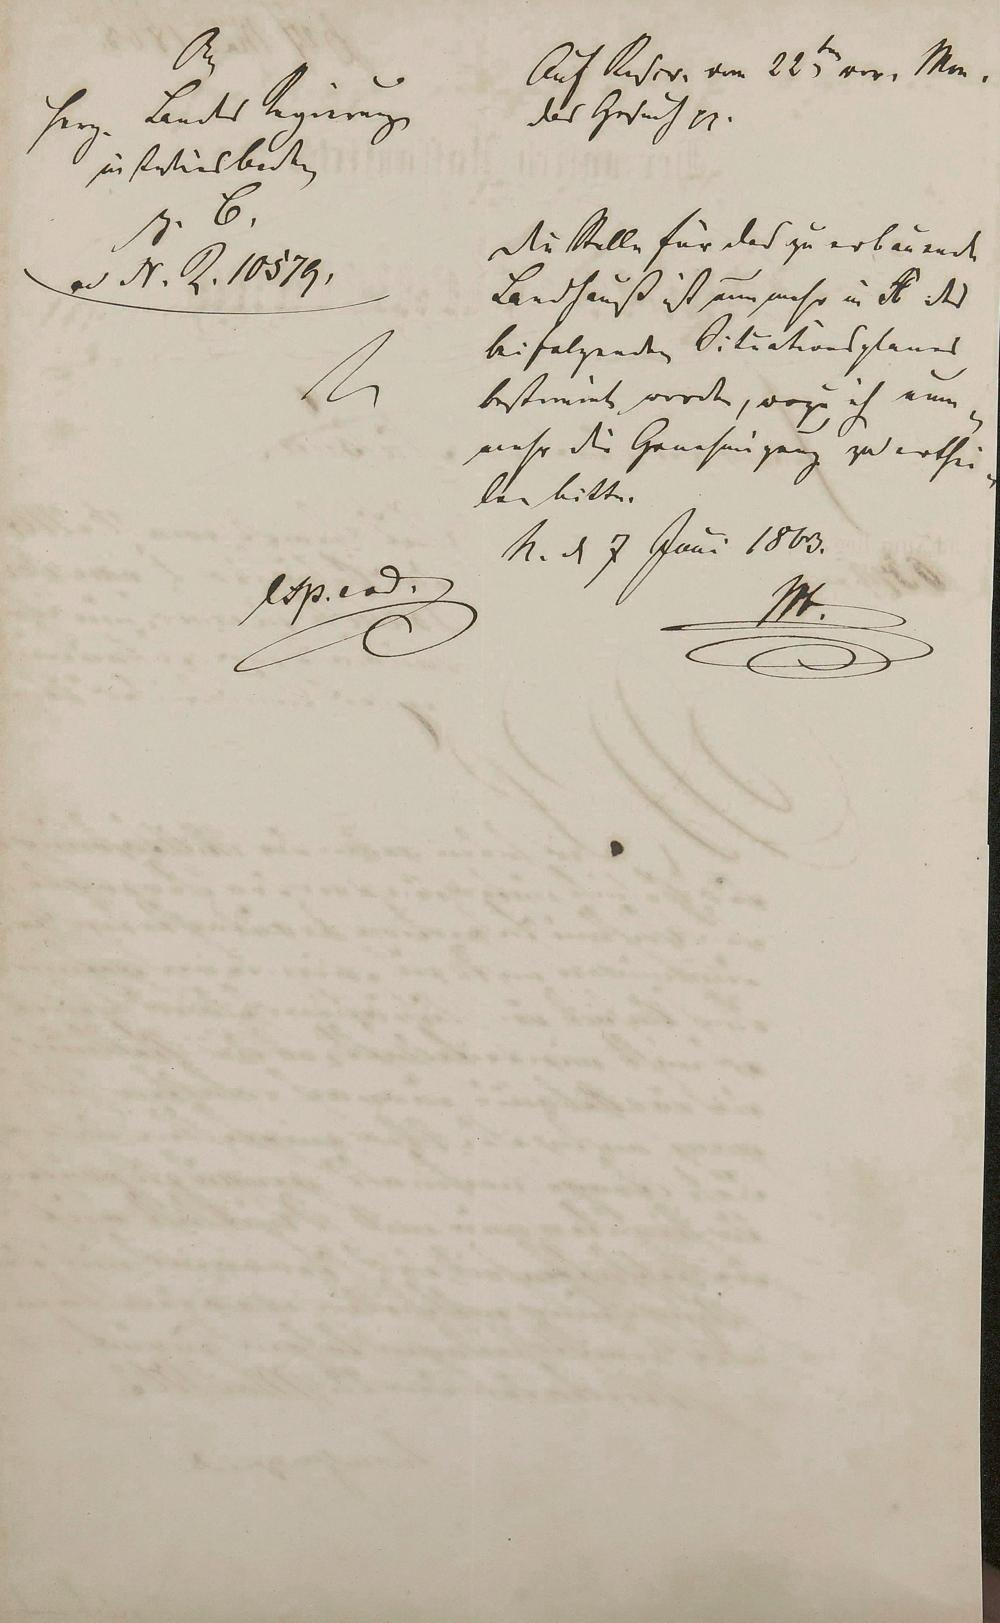 An
Herz. Landes Regierung
in Wiesbaden
z. B.
ad N. R. 10579.
Auf Rescr. vom 22ten vor. Mon.
das Gesuch pp.
Die Stelle für das zu erbauende
Landhauß ist nunmehr in des
beifolgenden Situationsplanes
bestimmt worden, wozu ich nun-
mehr die Genehmigung zu erthei-
len bitte.
H. d 7 Juni 1863.
exp. eod.